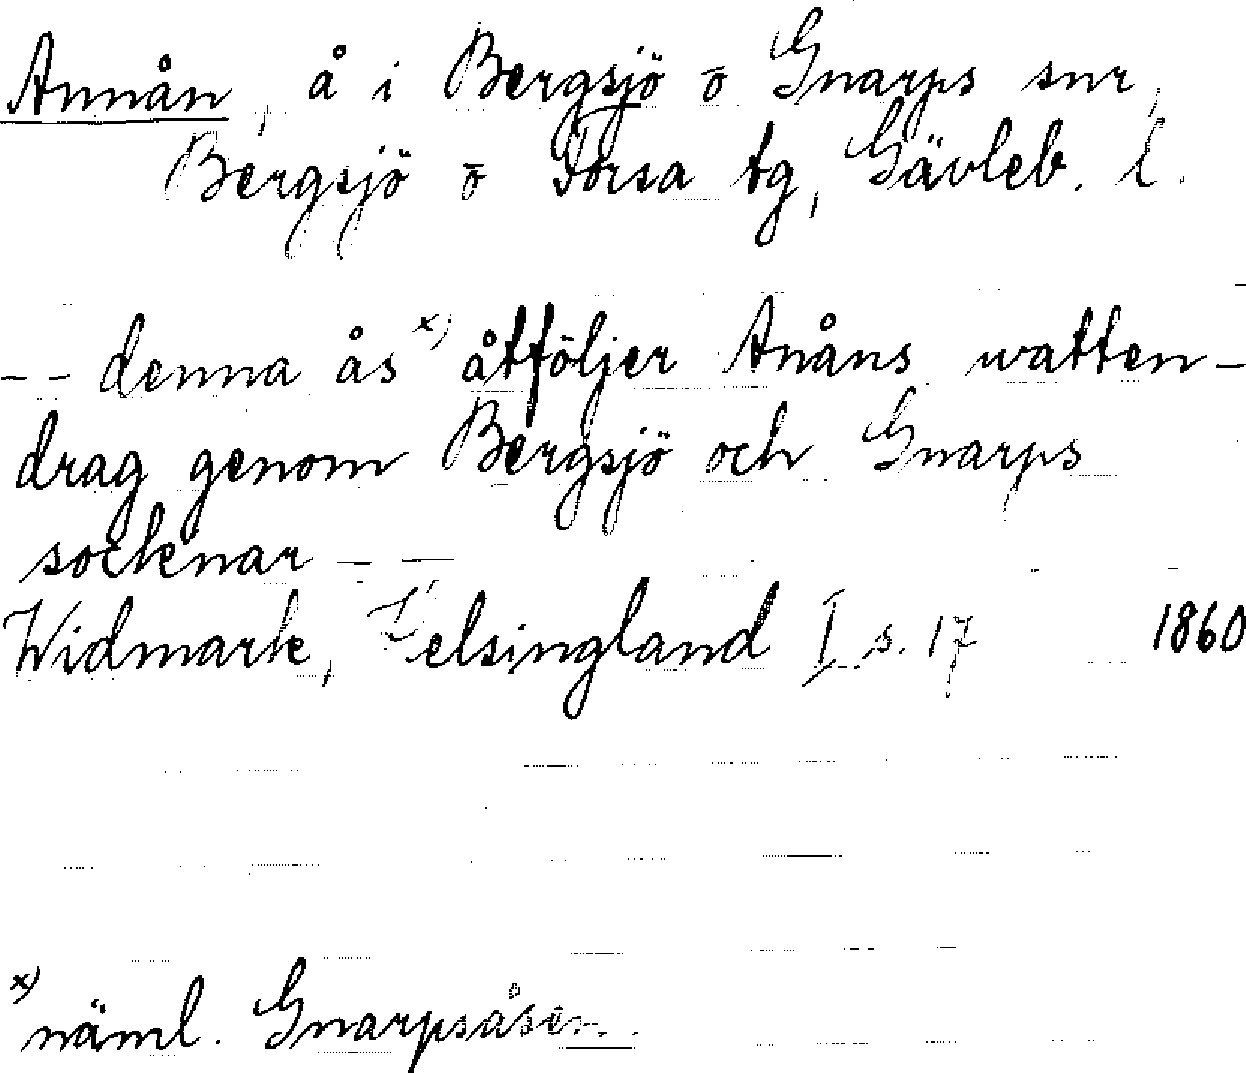 Annån, å i Bergsjö o Gnarps snr,
Bergsjö o Forsa tg, Gävleb. l.
-- denna ås x) åtföljer Anåns watten-
drag genom Bergsjö och Gnarps
socknar --
Widmark, Helsingland I s. 17 1860
x) näml. Gnarpsåsen.